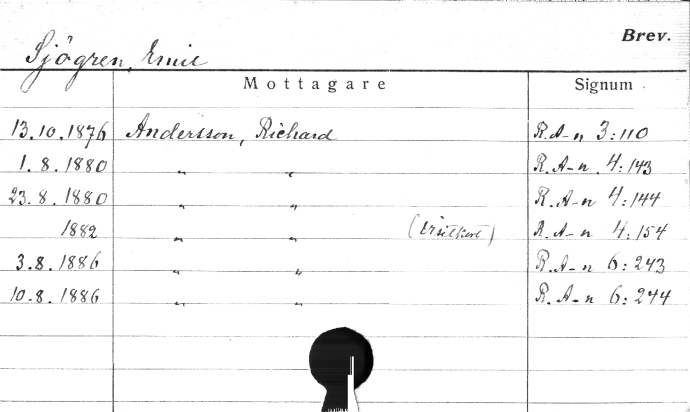 Brev.
Sjögren, Emil
Mottagare Signum
13.10.1876 Andersson, Richard R. A-n 3:110
1.8.1880 " " R. A-n. 4:143
23.8.1880 " " R. A-n 4:144
1882 " " (visitkort) R. A-n 4:154
3.8.1886 " " R. A-n 6:243
10.8.1886 " " R. A-n 6:244